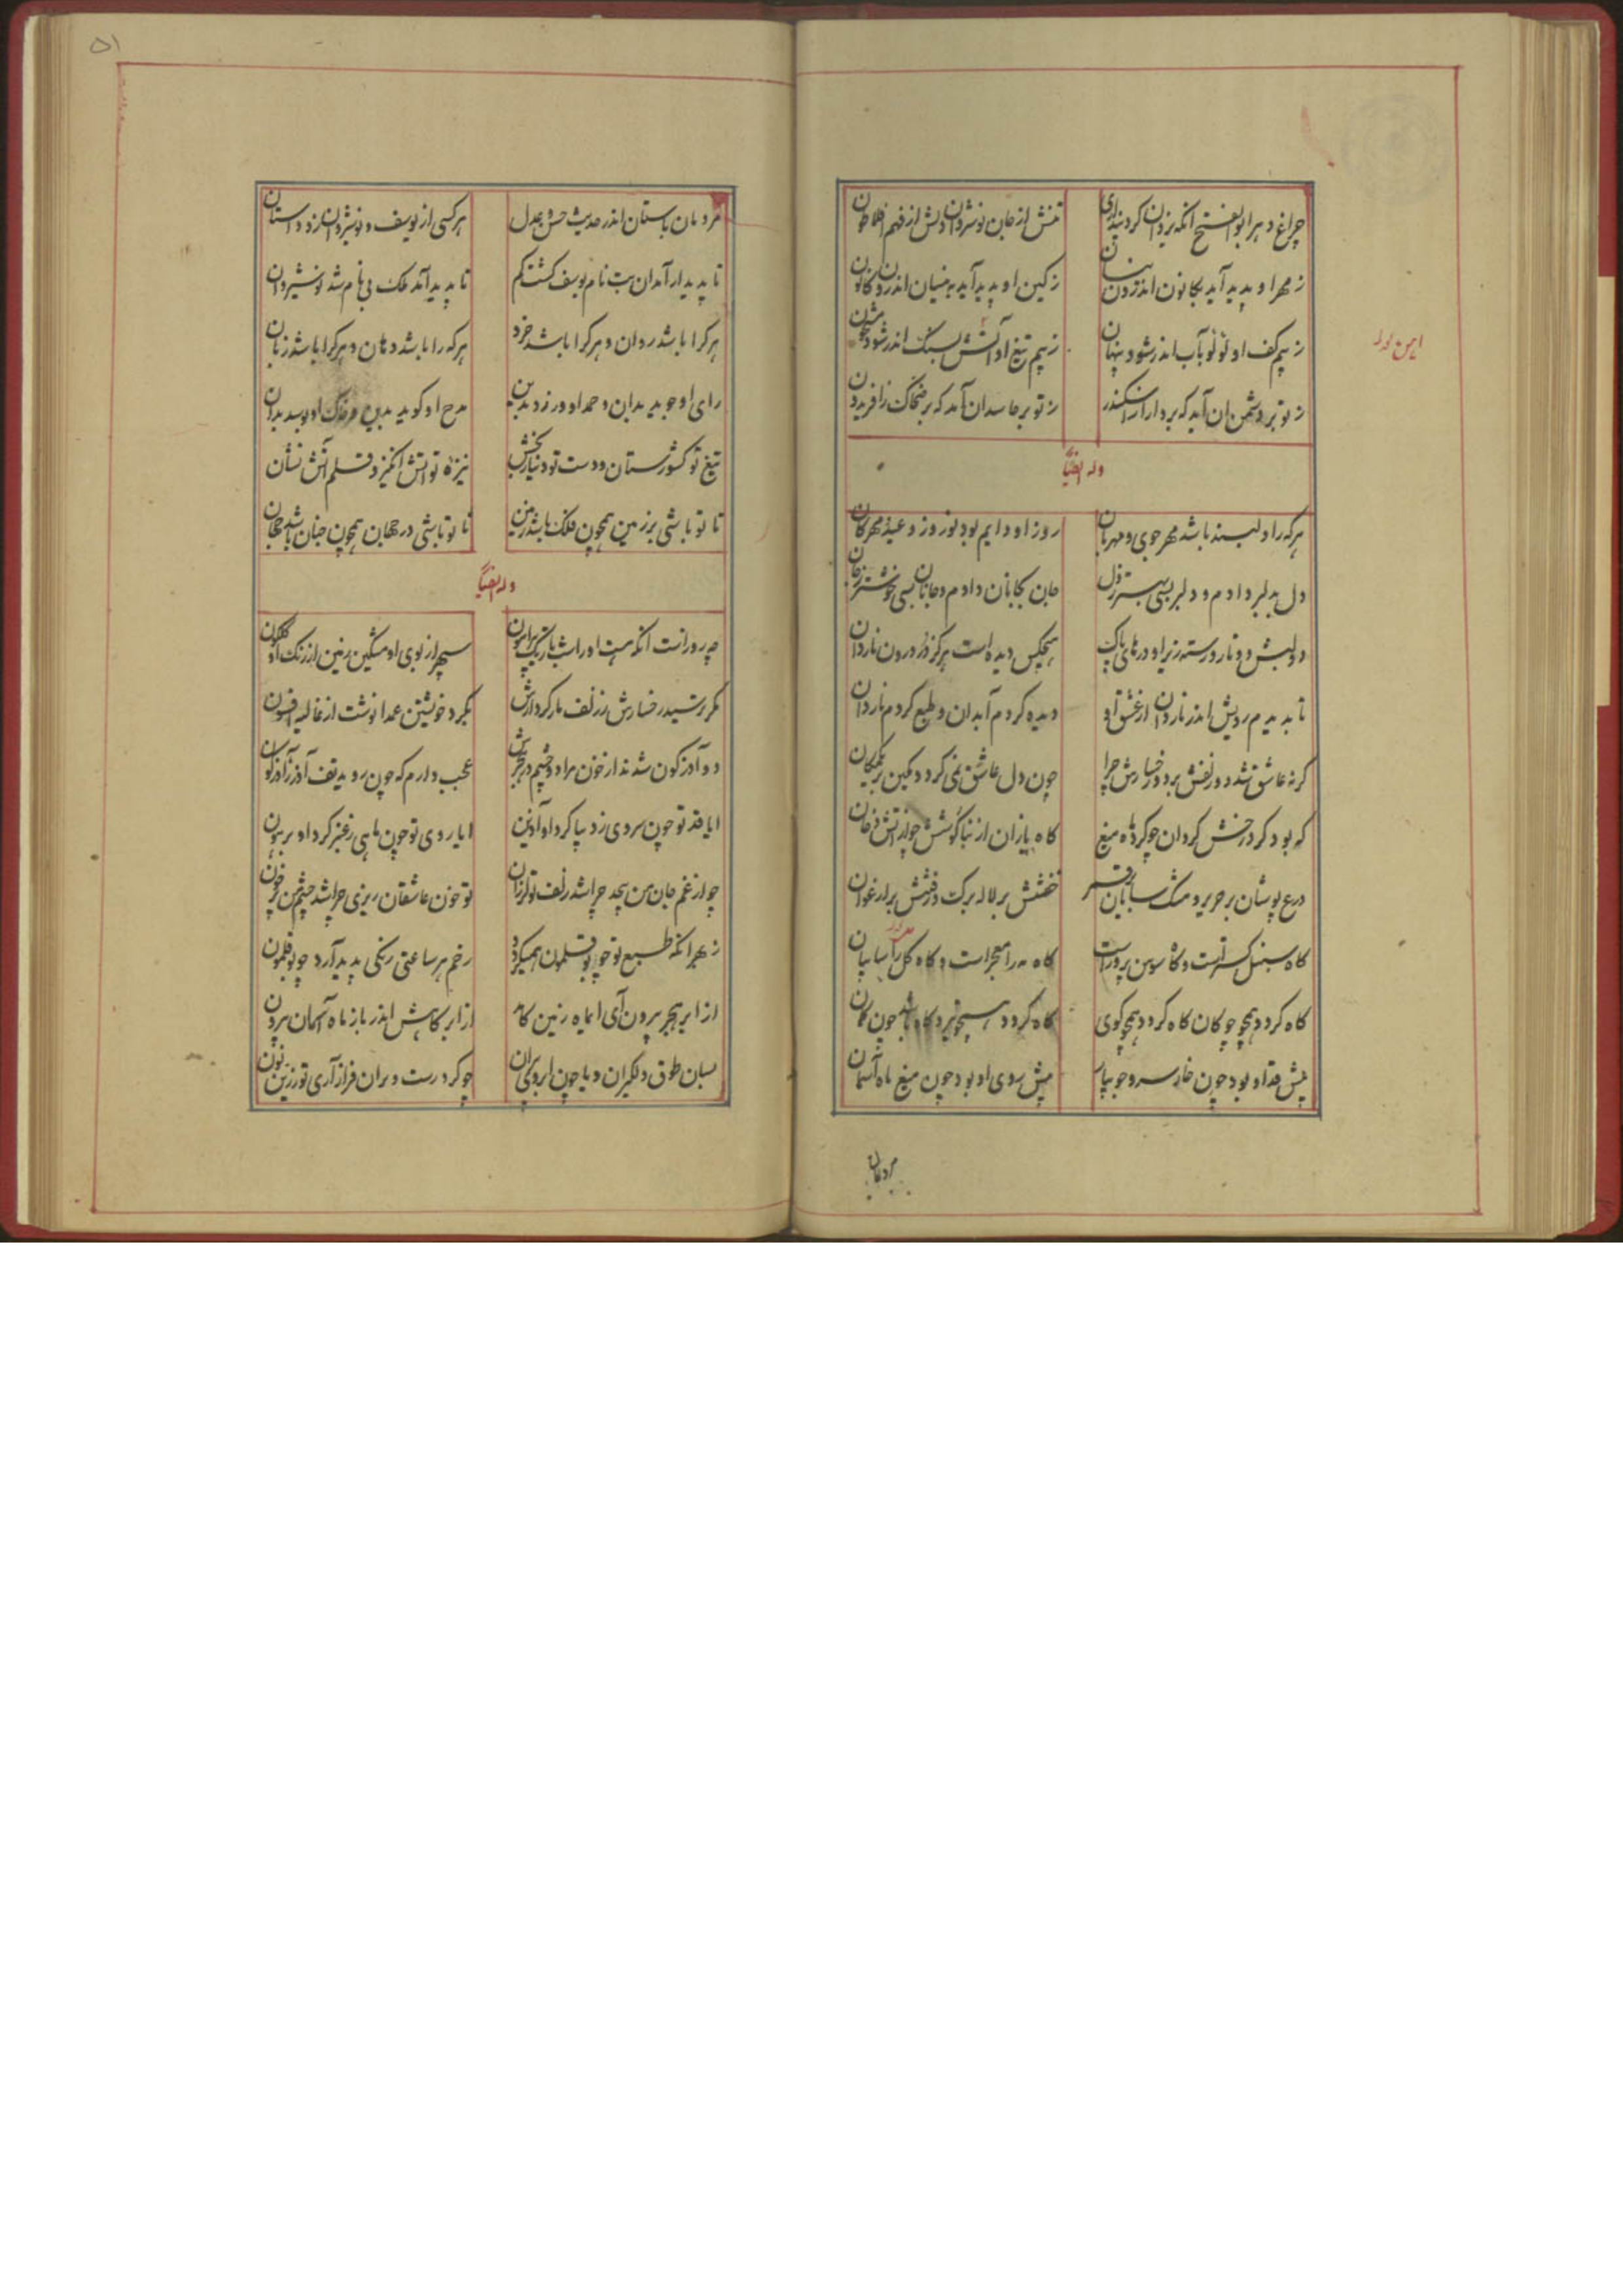 چراغ دهر ابوالفتح آنکه یزدان کرد پنداری تنش از جان نوشروان دلش از فهم افلاطون
ز مهر او پدید آید بکانون اندرون نیسان ز کین او پدید آید به نیسان اندرون کانون
ز بیم کف او لؤلؤ بآب اندر شود پنهان ز بیم تیغ او آتش بسنگ اندر شود
ز تو بر دشمن آن آید که بر دارا ز اسکندر ز تو بر حاسدان آمد که بر ضحاک ز افریدون
وله ایضاً
هرکه را دلبند باشد مهرجوی و مهربان روز او دایم بود نوروز و عید مهرکان
دل بدلبر دادم و دلبر بسی بهتر ز دل جان بجانان دادم و جانان بسی خوشتر ز جان
دو لبش دو نار و رسته زیر او درهای پاک هیچکس دیده است هرگز در درون ناردان
تا بدیدم رویش اندر ناردان از عشق او دیده کردم آبدان و طبع کردم ناردان
کر نه عاشق شد دو زلفش بر دو رخسارش چرا چون دل عاشق نمی کردد مکین بر یکمکان
که بود کرد رخش کردان چو کرد ماه میغ کاه یازان از بناکوشش چو از آتش دخان
درع پوشان بر حریر و مشک سایان بر قمر خفتنش بر لاله برکت و رفتنش بر ارغوان
کاه سنبل کستر است و کاه سوسن پرور است کاه مه را معجر است و کاه کل را سایبان
کاه کردد همچو چوکان کاه کردد همچو کوی کاه کردد همچو تیر و کاه باشد چون کمان
پیش قد او بود چون خار سرو جویبار پیش روی او بود چون میغ ماه آسمان
مردمان
۵۱
مردمان باستان اندر حدیث حسن و عدل هرکسی از یوسف و نوشیروان زد داستان
تا پدیدار آمد آن بت نام یوسف کشت کم تا پدید آمد ملک بی نام شد نوشیروان
هرکرا باشد روان و هرکرا باشد خرد هرکه را باشد دهان و هرکرا باشد زبان
رای او جوید بدان و حمد او ورزد بدین مدح او کوید بدین و خاک او بوسد بدان
تیغ تو کشورستان و دست تو دنیار بخش نیزه تو آتش انگیز و قلم آتش نشان
تا تو باشی بر زمین همچون فلک باشد زمین تا تو باشی در جهان همچون جنان باشد جهان
وله ایضاً
چه روز است آنکه هست او را شب تاریک پیرامون سپهر از بوی او مشکین زمین از رنک او کلکون
مکر ترسید رخسارش ز زلف مار کردارش بکرد خویشتن عمدا نوشت از غالیه افسون
دو آذرکون شدند از خون مرا دو چشم در هجرش عجب دارم که چون روید تف آذر ز آذریون
ایا قد تو چون سروی ز دیبا کرد او آذین ایا روی تو چون ماهی ز عنبر کرد او پرهون
چو از غم جان من پیچد چرا شد زلف تو لرزان تو خون عاشقان ریزی چرا شد چشم من پر خون
ز بهر آنکه طبع تو چو بوقلمون همیکردد رخم هر ساعتی رنکی پدید آرد چو بوقلمون
از ابر هجر بیرون آی ایماه زمین کامد از ابر کاهش اندر باز ماه آسمان بیرون
بسان طوق دلکیران و یا چون ابروی پیران چو کرد رست ویران فراز آری تو زرین نون